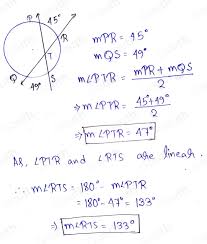 P
45°
R
T
Q
49°
S
mPR = 45°
mQS = 49°
m∠PTR = mPR + mQS / 2
⇒ m∠PTR = 45+49° / 2
⇒ m∠PTR = 47°
AS, ∠PTR and ∠RTS are linear.
∴ m∠RTS = 180° - m∠PTR
= 180° - 47° = 133°
⇒ m∠RTS = 133°